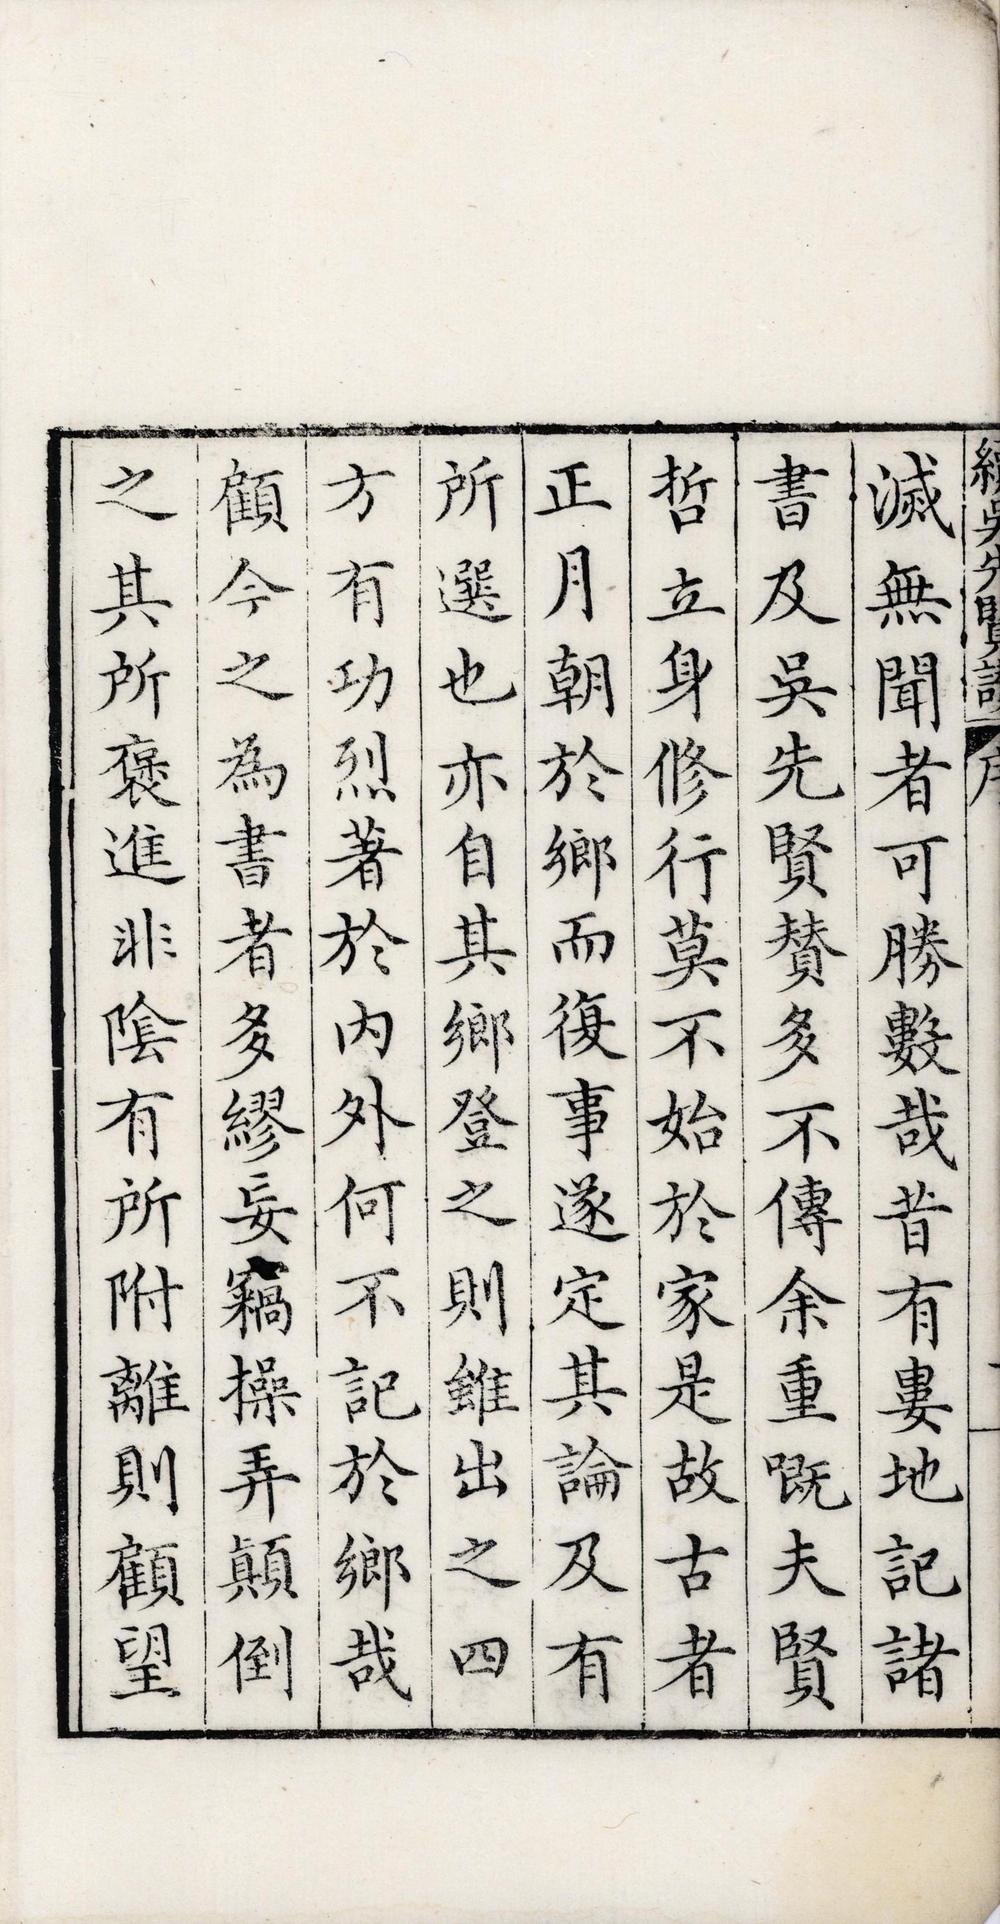 續吳先賢讚 序
滅無聞者可勝數哉昔有婁地記諸
書及吳先賢賛多不傳余重嘅夫賢
哲立身修行莫不始於家是故古者
正月朝於鄉而復事遂定其論及有
所選也亦自其鄉登之則雖出之四
方有功烈著於內外何不記於鄉哉
顧今之為書者多繆妄竊操弄顛倒
之其所褒進非陰有所附離則顧望